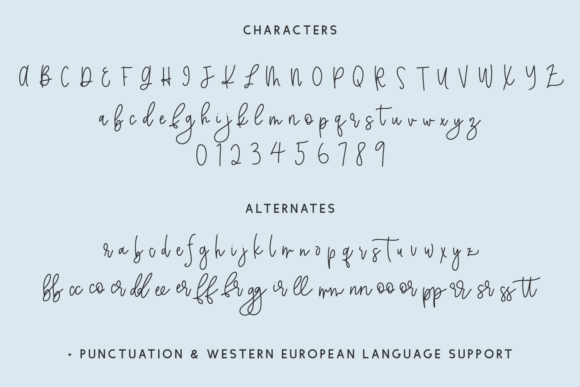 CHARACTERS
A B C D E F G H I J K L M N O P Q R S T U V W X Y Z
a b c d e f g h i j k l m n o p q r s t u v w x y z
0 1 2 3 4 5 6 7 8 9
ALTERNATES
r a b c d e f g h i j k l m n o p q r s t u v w x y z
bb cc co cr dd ee er ff fr gg ir ll mm nn oo or pp rr sr ss tt
+ PUNCTUATION & WESTERN EUROPEAN LANGUAGE SUPPORT